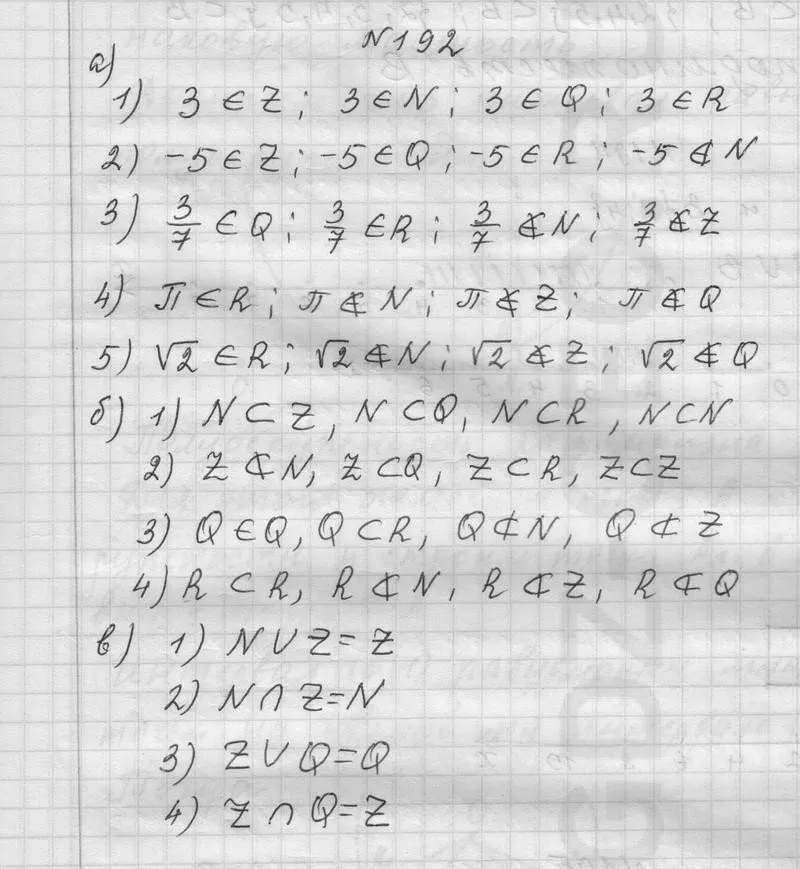 N192
а)
1) 3 ∈ Z; 3 ∈ N; 3 ∈ Q; 3 ∈ R
2) -5 ∈ Z; -5 ∈ Q; -5 ∈ R; -5 ∉ N
3) 3/7 ∈ Q; 3/7 ∈ R; 3/7 ∉ N; 3/7 ∉ Z
4) π ∈ R; π ∉ N; π ∉ Z; π ∉ Q
5) √2 ∈ R; √2 ∉ N; √2 ∉ Z; √2 ∉ Q
б) 1) N ⊂ Z, N ⊂ Q, N ⊂ R, N ⊂ N
2) Z ⊄ N, Z ⊂ Q, Z ⊂ R, Z ⊂ Z
3) Q ∈ Q, Q ⊂ R, Q ⊄ N, Q ⊄ Z
4) R ⊂ R, R ⊄ N, R ⊄ Z, R ⊄ Q
в) 1) N ∪ Z = Z
2) N ∩ Z = N
3) Z ∪ Q = Q
4) Z ∩ Q = Z